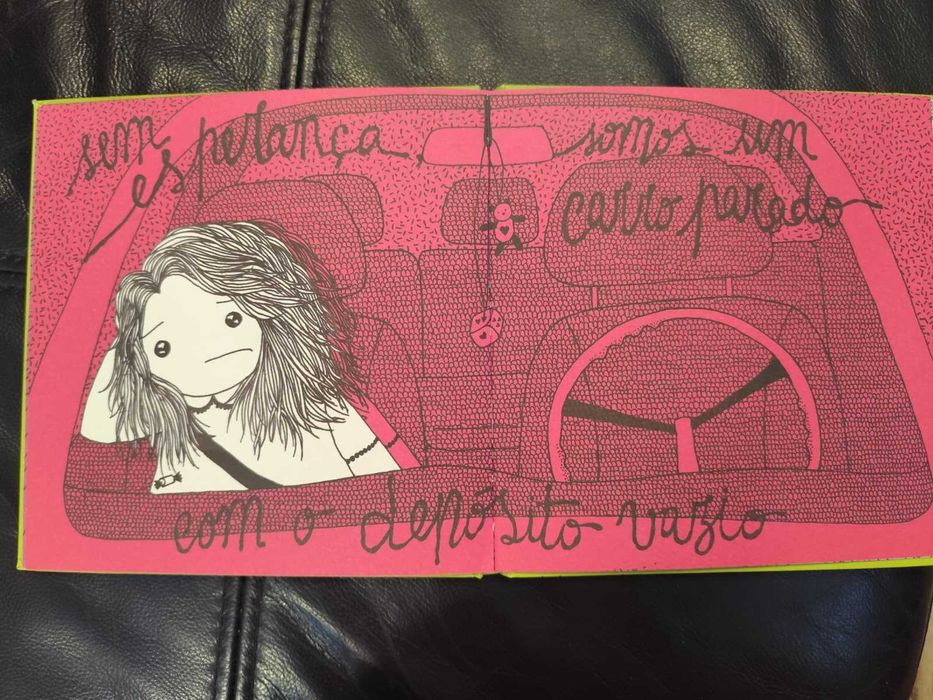 sem esperança,
somos um
carro parado
com o depósito vazio